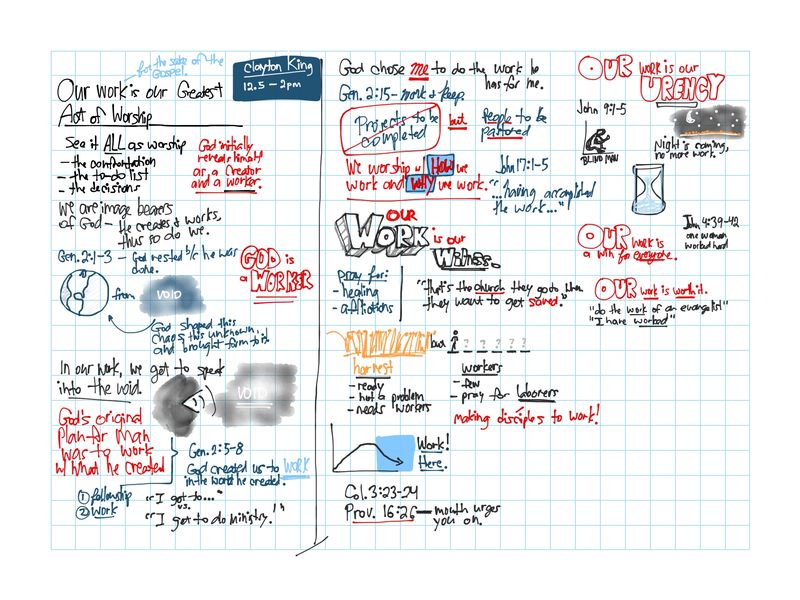 for the sake of the
Gospel.
Our work is our Greatest
Act of Worship
Clayton King
12.5 – 2pm
See it ALL as worship
- the confrontation
- the to-do list
- the decisions
God initially
reveals himself
as a Creator
and a worker.
We are image bearers
of God - He creates & works,
thus so do we.
Gen. 2:1-3 - God rested b/c he was
done.
GOD is
a WORKER
from
VOID
God shaped this
chaos, this unknown,
and brought form to it
In our work, we got to speak
into the void.
VOID
God's original
plan for man
was to work
w/ what he created
Gen. 2:5-8
God created us to WORK
in the world he created.
① fellowship
② work
"I got to..."
vs.
"I get to do ministry!"
God chose me to do the work he
has for me.
Gen. 2:15 - work & keep.
Projects to be
completed
but
people to be
pastored
We worship w/ How we
work and why we work.
John 17:1-5
"...having accomplished
the work..."
OUR
WORK is our
Witness.
pray for:
- healing
- afflictions
"that's the church they go to when
they want to get saved."
but
? ? ? ? ?
harvest
- ready
- not a problem
- needs workers
workers
- few
- pray for laborers
making disciples to work!
Work!
Here.
Col. 3:23-24
Prov. 16:26 - mouth urges
you on.
OUR work is our
URENCY
John 9:1-5
BLIND MAN
Night is coming,
no more work.
John 4:39-42
one woman
worked hard
OUR work is
a win for everyone.
OUR work is worth it.
"do the work of an evangelist"
"I have worked"